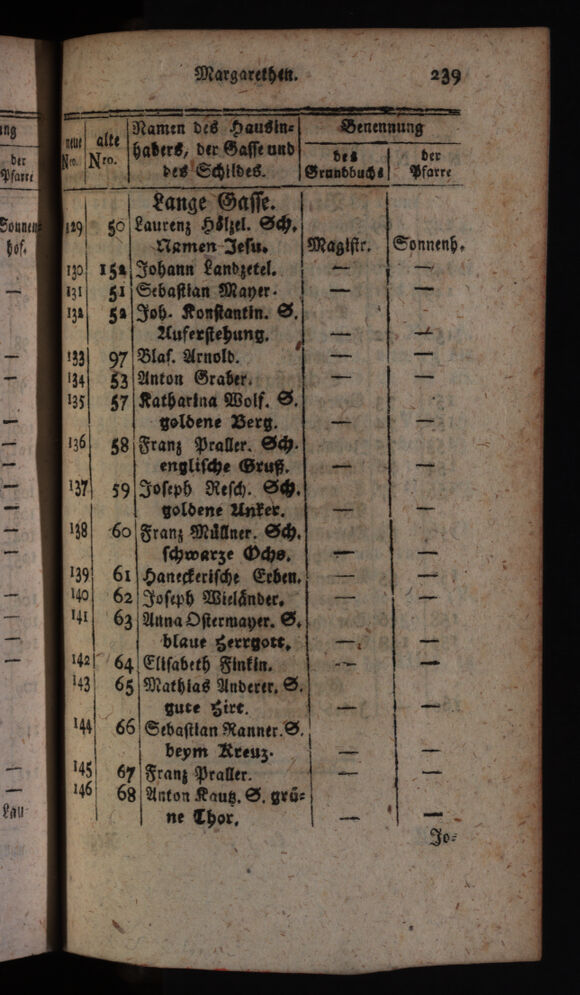 Margarethen. 239
neue Nro. alte Nro. Namen des Hausin= Benennung
habers, der Gasse und des der
des Schildes. Grundbuchs Pfarre
Lange Gasse.
129 50 Laurenz Hölzel. Sch.
Namen Jesu. Magistr. Sonnenh.
130 152 Johann Landzetel. — —
131 51 Sebastian Mayer. — —
132 52 Joh. Konstantin. S.
Auferstehung. — —
133 97 Blas. Arnold. — —
134 53 Anton Graber. — —
135 57 Katharina Wolf. S.
goldene Berg. — —
136 58 Franz Praller. Sch.
englische Gruß. — —
137 59 Joseph Resch. Sch.
goldene Anker. — —
138 60 Franz Müllner. Sch.
schwarze Ochs. — —
139 61 Haneckerische Erben. — —
140 62 Joseph Wieländer. — —
141 63 Anna Ostermayer. S.
blaue Herrgott. — —
142 64 Elisabeth Finkin. — —
143 65 Mathias Anderer. S.
gute Hirt. — —
144 66 Sebastian Ranner. S.
beym Kreuz. — —
145 67 Franz Praller. — —
146 68 Anton Kautz. S. grü=
ne Thor. — —
Jo=
ng
der
Pfarre
Sonnen
hof.
—
—
—
—
—
—
—
Lau